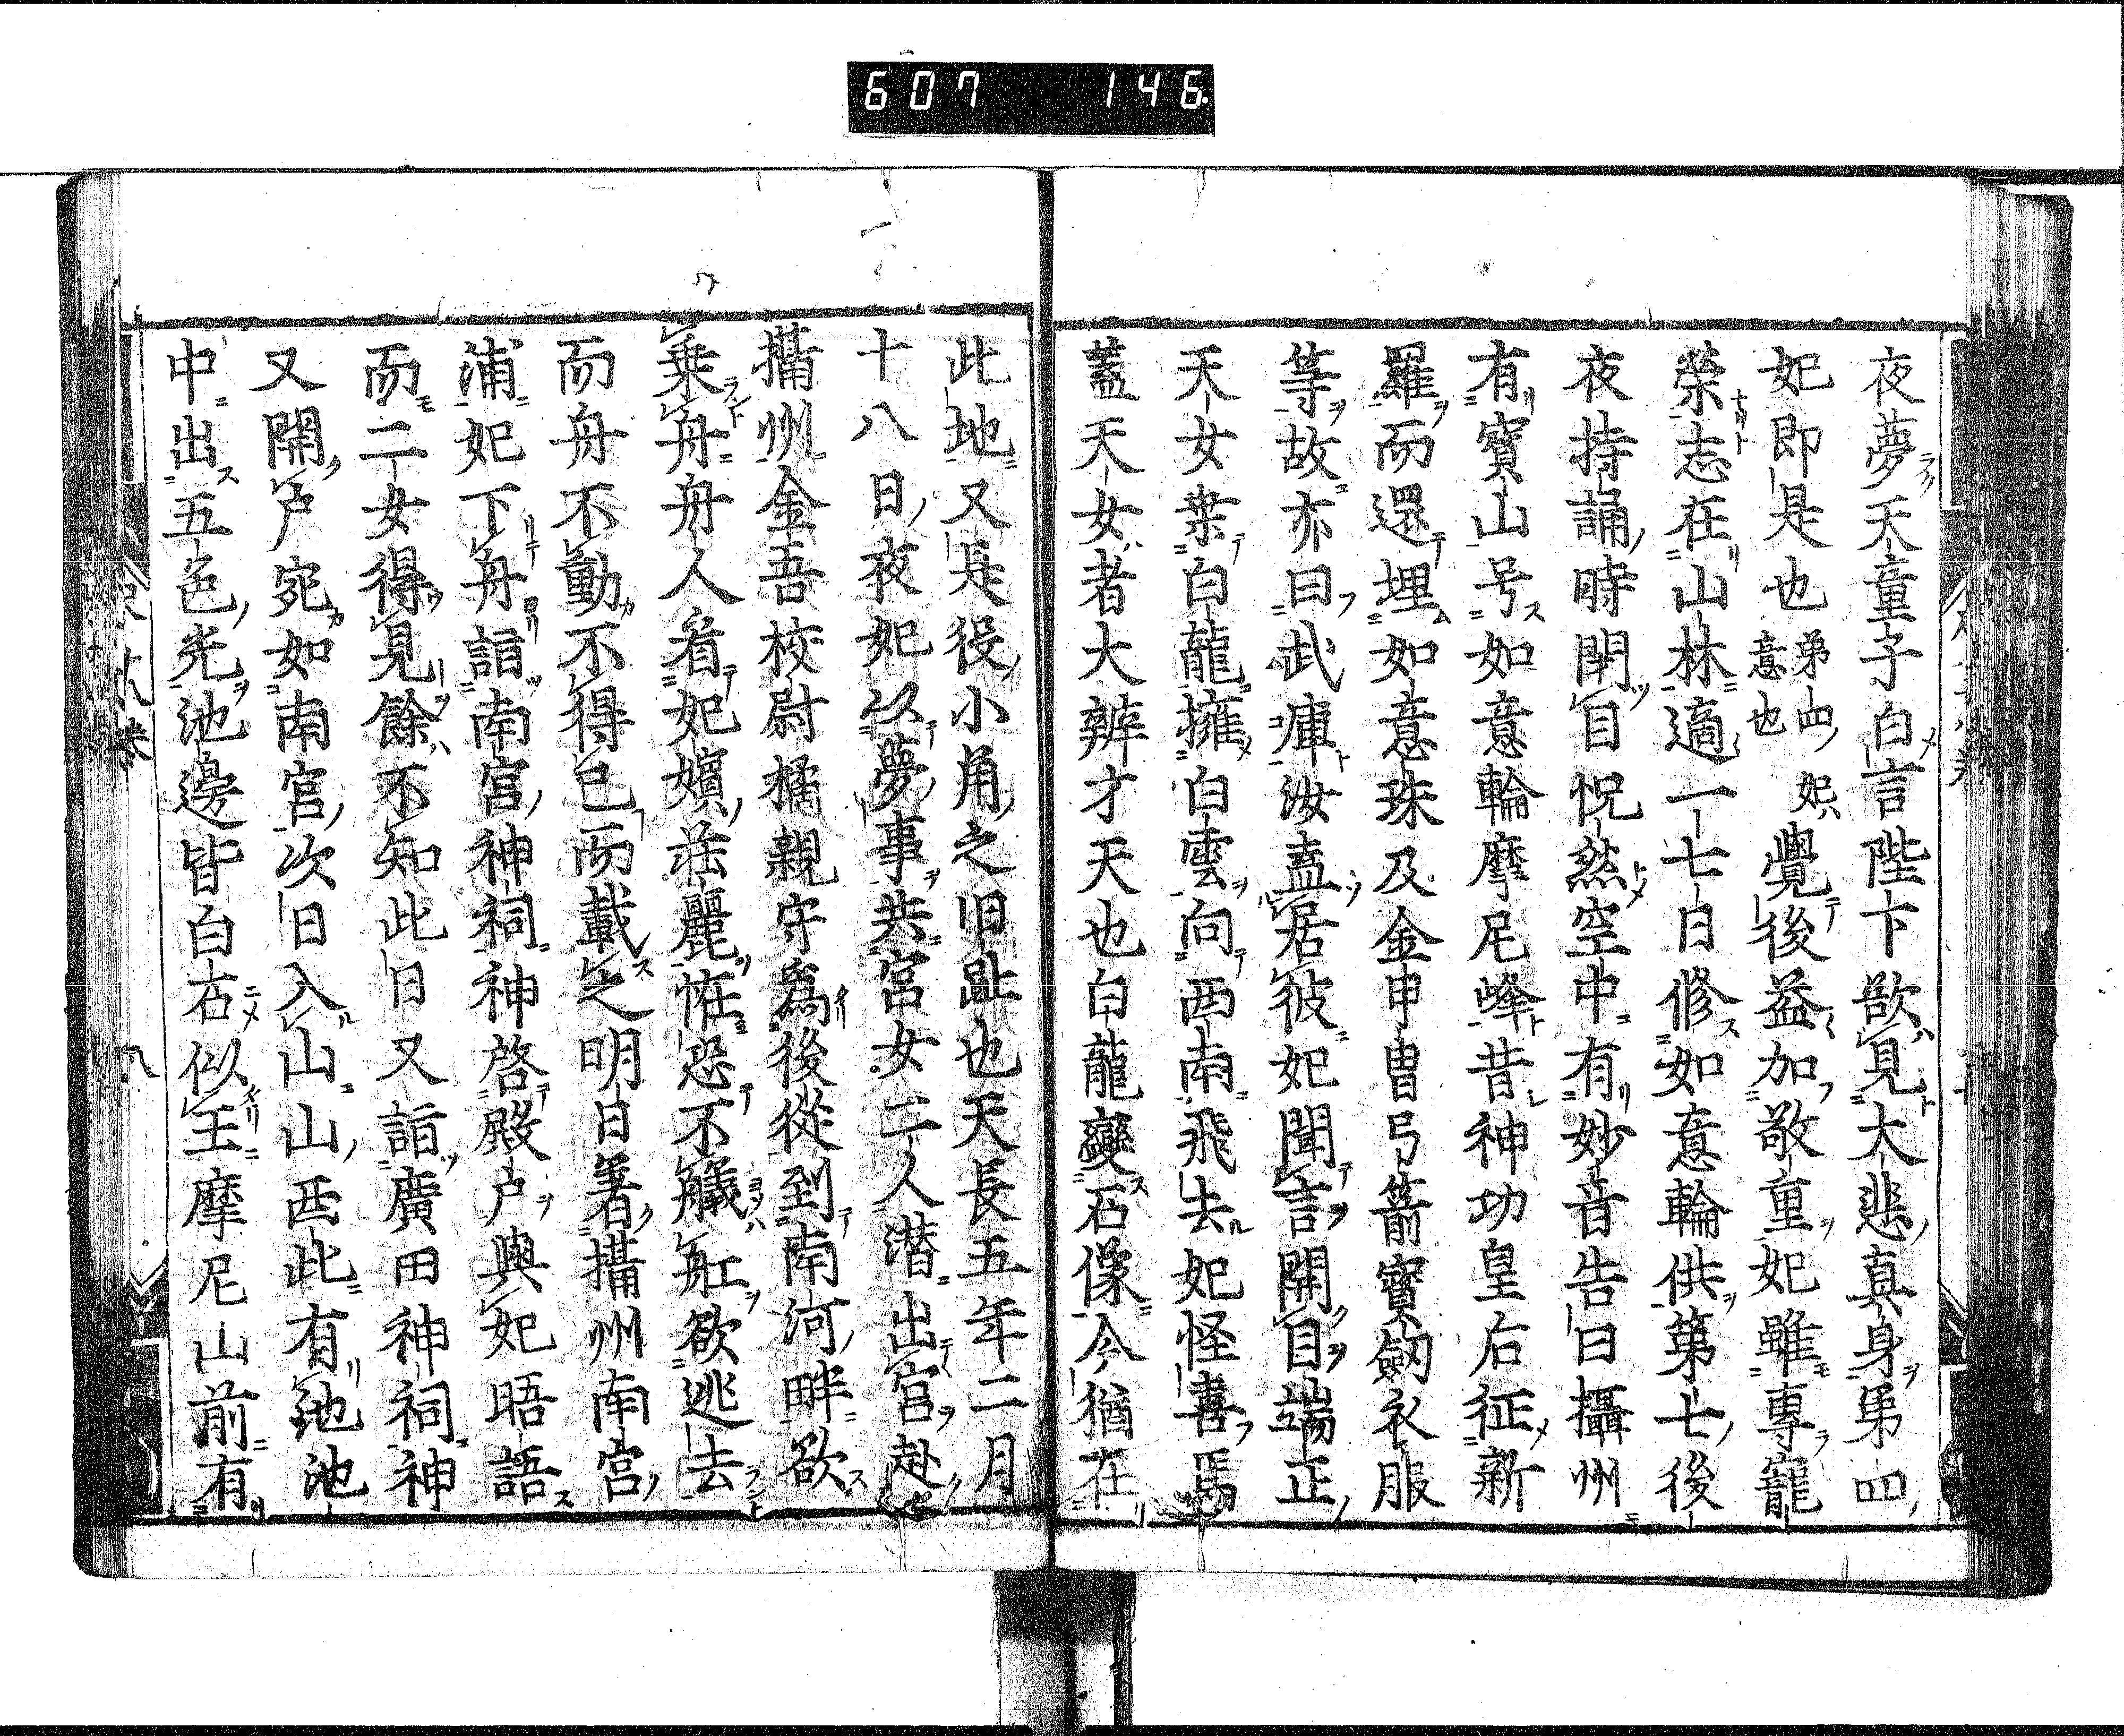 607 146
夜夢天童子白言陛下欲見大悲真身第四
妃即是也
第四妃
意也
覺後益加敬重妃雖專寵
榮志在山林適一七日修如意輪供第七後
夜持誦時閉目怳然空中有妙音告曰攝州
有寳山号如意輪摩尼峰昔神功皇后征新
羅而還埋如意珠及金甲冑弓箭寳劔衣服
等故亦曰武庫汝盍居彼妃聞言開目端正
天女乗白龍擁白雲向西南飛去妃怪喜焉
蓋天女者大辨才天也白龍變石像今猶在
此地又是役小角之旧趾也天長五年二月
十八日夜妃以夢事共宮女二人潜出宮赴
攝州金吾校尉橘親守爲後從到南河畔欲
乗舟舟人看妃嬪荘麗恠恐不艤舡欲逃去
而舟不動不得已而載之明日着攝州南宮
浦妃下舟詣南宮神祠神啓殿戸與妃晤語
而二女得見餘不知此日又詣廣田神祠神
又開戸宛如南宮次日入山山西此有池池
中出五色光池邊皆白石似玉摩尼山前有
八